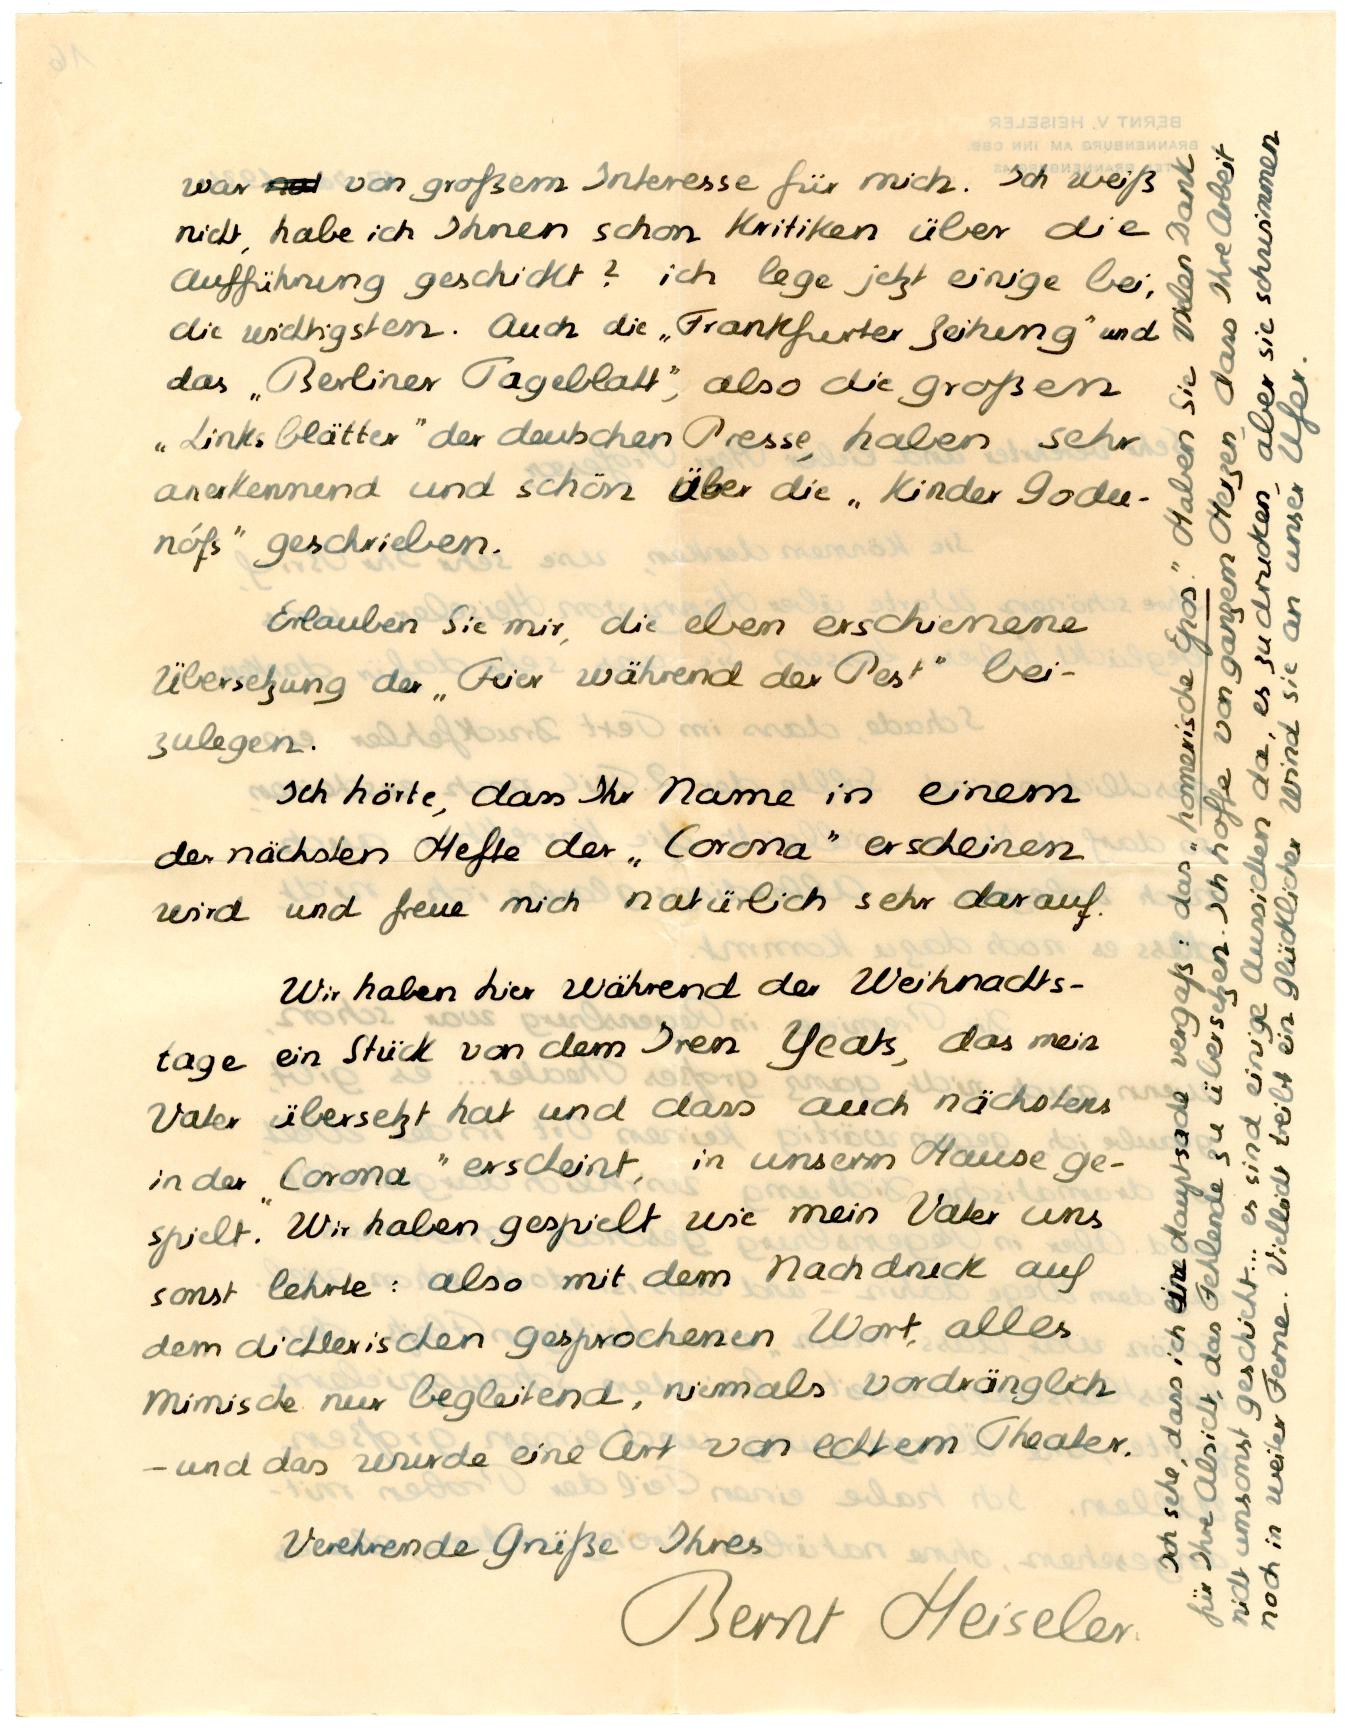 war von großem Interesse für mich. Ich weiß
nicht, habe ich Ihnen schon Kritiken über die
Aufführung geschickt? ich lege jetzt einige bei,
die wichtigsten. Auch die „Frankfurter Zeitung" und
das „Berliner Tageblatt", also die großen
„Linksblätter" der deutschen Presse, haben sehr
anerkennend und schön über die „Kinder Godu-
nófs" geschrieben.
Erlauben Sie mir, die eben erschienene
Übersetzung der „Feier während der Pest" bei-
zulegen.
Ich hörte, dass Ihr Name in einem
der nächsten Hefte der „Corona" erscheinen
wird und freue mich natürlich sehr darauf.
Wir haben hier während der Weihnachts-
tage ein Stück von dem Iren Yeats, das mein
Vater übersetzt hat und dass auch nächstens
in der „Corona" erscheint, in unserm Hause ge-
spielt. Wir haben gespielt wie mein Vater uns
sonst lehrte: also mit dem Nachdruck auf
dem dichterischen gesprochenen Wort, alles
Mimische nur begleitend, niemals vordränglich
– und das wurde eine Art von echtem Theater.
Verehrende Grüße Ihres
Bernt Heiseler.
Ich sehe, dass ich eine Hauptsache vergaß: das „homerische Epos." Haben Sie vielen Dank
für Ihre Absicht, das Fehlende zu übersetzen. Ich hoffe von ganzem Herzen, dass Ihre Arbeit
nicht umsonst geschieht... es sind einige Aussichten da, es zu drucken, aber sie schwimmen
noch in weiter Ferne. Vielleicht treibt ein glücklicher Wind sie an unser Ufer.